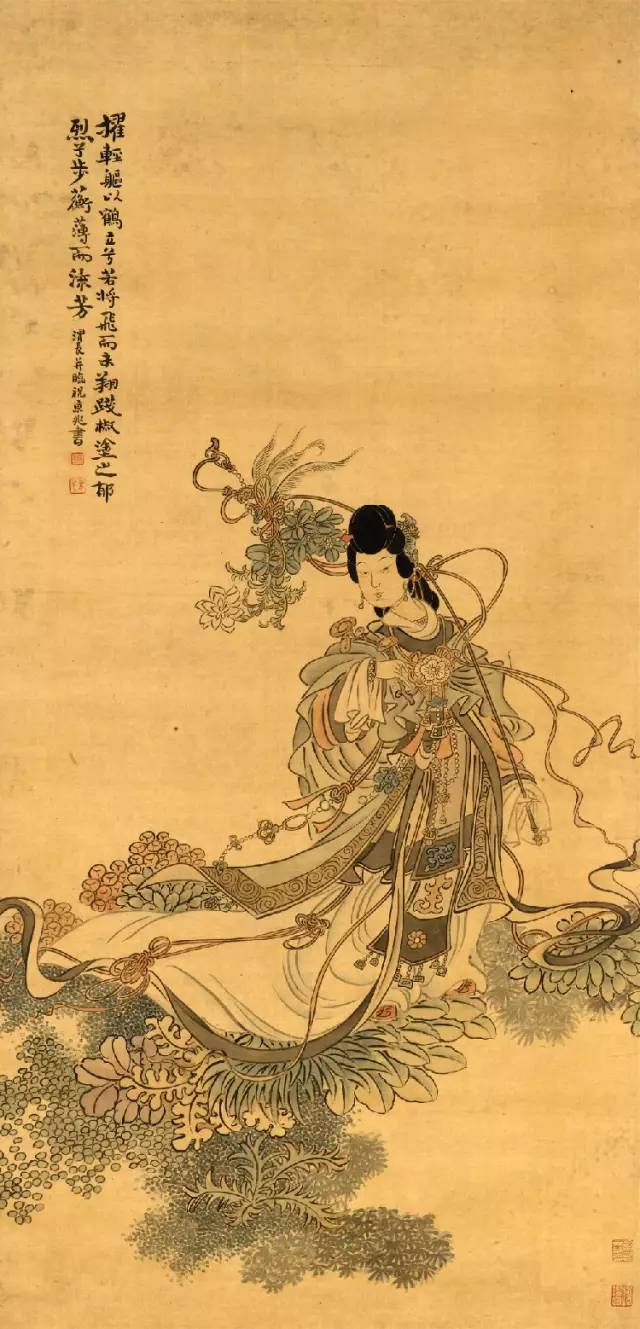 擢輕軀以鶴立兮若將飛而未翔踐椒塗之郁
烈兮步蘅薄而流芳
渭長并臨祝京兆書